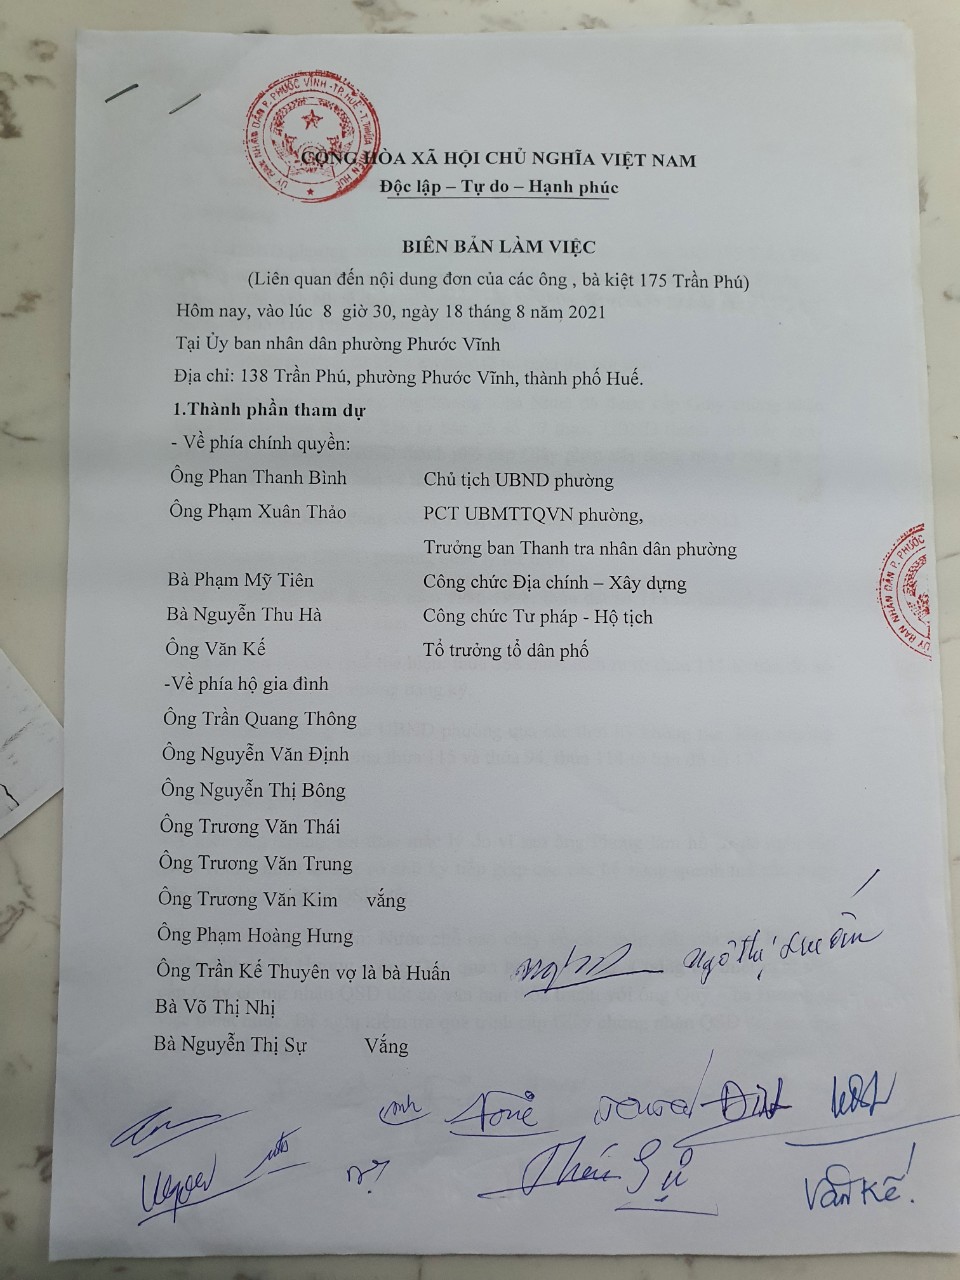 ỦY BAN NHÂN DÂN P. PHƯỚC VĨNH - TP. HUẾ - T. THỪA THIÊN HUẾ
CỘNG HÒA XÃ HỘI CHỦ NGHĨA VIỆT NAM
Độc lập – Tự do – Hạnh phúc
BIÊN BẢN LÀM VIỆC
(Liên quan đến nội dung đơn của các ông , bà kiệt 175 Trần Phú)
Hôm nay, vào lúc 8 giờ 30, ngày 18 tháng 8 năm 2021
Tại Ủy ban nhân dân phường Phước Vĩnh
Địa chỉ: 138 Trần Phú, phường Phước Vĩnh, thành phố Huế.
1.Thành phần tham dự
- Về phía chính quyền:
Ông Phan Thanh Bình Chủ tịch UBND phường
Ông Phạm Xuân Thảo PCT UBMTTQVN phường,
Trưởng ban Thanh tra nhân dân phường
Bà Phạm Mỹ Tiên Công chức Địa chính – Xây dựng
ỦY BAN NHÂN DÂN P. PHƯỚC
Bà Nguyễn Thu Hà Công chức Tư pháp - Hộ tịch
Ông Văn Kế Tổ trưởng tổ dân phố
-Về phía hộ gia đình
Ông Trần Quang Thông
Ông Nguyễn Văn Định
Ông Nguyễn Thị Bông
Ông Trương Văn Thái
Ông Trương Văn Trung
Ông Trương Văn Kim vắng
Ông Phạm Hoàng Hưng
Ông Trần Kế Thuyên vợ là bà Huấn Ngô Thị
Bà Võ Thị Nhị
Bà Nguyễn Thị Sự Vắng
Định
Thái Sự
Văn Kế